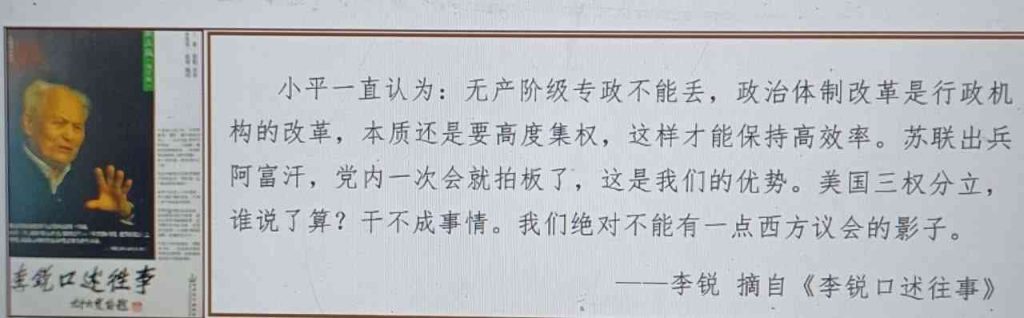 小平一直认为：无产阶级专政不能丢，政治体制改革是行政机
构的改革，本质还是要高度集权，这样才能保持高效率。苏联出兵
阿富汗，党内一次会就拍板了，这是我们的优势。美国三权分立，
谁说了算？干不成事情。我们绝对不能有一点西方议会的影子。
——李锐 摘自《李锐口述往事》
李锐口述往事